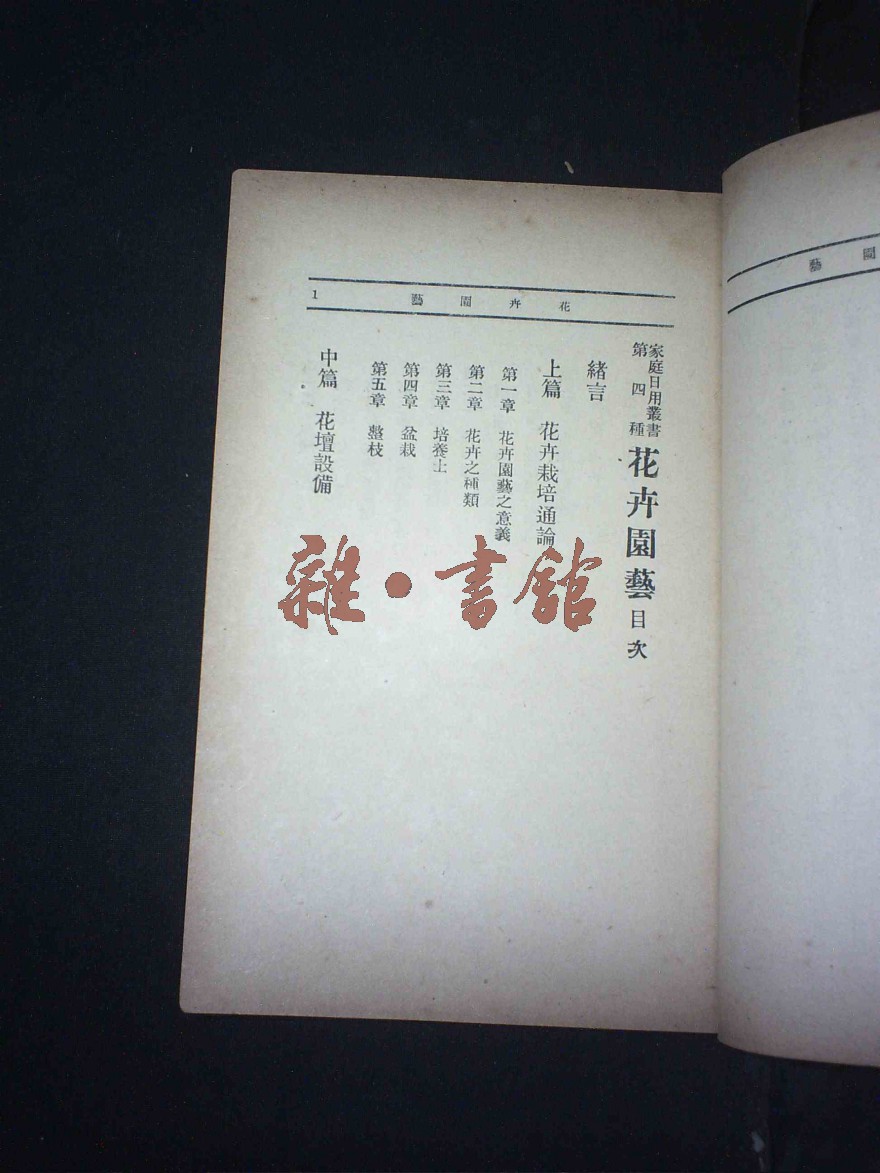 花卉園藝
1
家庭日用叢書
第四種
花卉園藝目次
緒言
上篇 花卉栽培通論
第一章 花卉園藝之意義
第二章 花卉之種類
第三章 培養土
第四章 盆栽
第五章 整枝
中篇 花壇設備
雜·書館
園藝